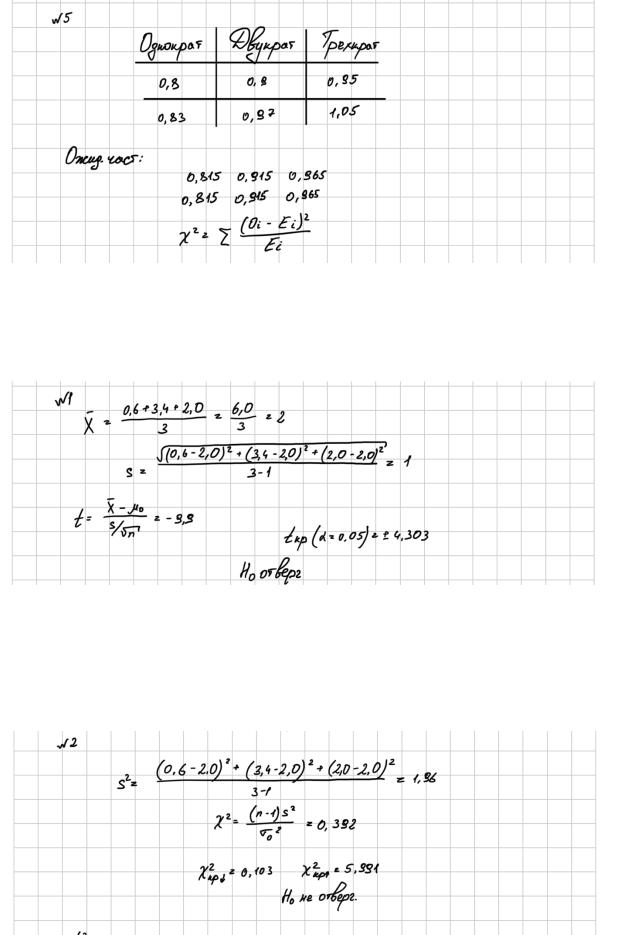 №5
Однократ Двукрат Трехкрат
0,8 0,9 0,95
0,83 0,97 1,05
Ожид. част:
0,815 0,915 0,965
0,815 0,915 0,965
χ² = Σ (Oi - Ei)² / Ei
№1
X̄ = (0,6 + 3,4 + 2,0) / 3 = 6,0 / 3 = 2
s = √((0,6 - 2,0)² + (3,4 - 2,0)² + (2,0 - 2,0)²) / (3-1) = 1
t = (X̄ - μ₀) / (s/√n) = -9,9
tкр (α = 0,05) = ± 4,303
H₀ отверг
№2
s² = ((0,6 - 2,0)² + (3,4 - 2,0)² + (2,0 - 2,0)²) / (3-1) = 1,96
χ² = (n-1)s² / σ₀² = 0,392
χ²кр = 0,103 χ²кр = 5,991
H₀ не отверг.